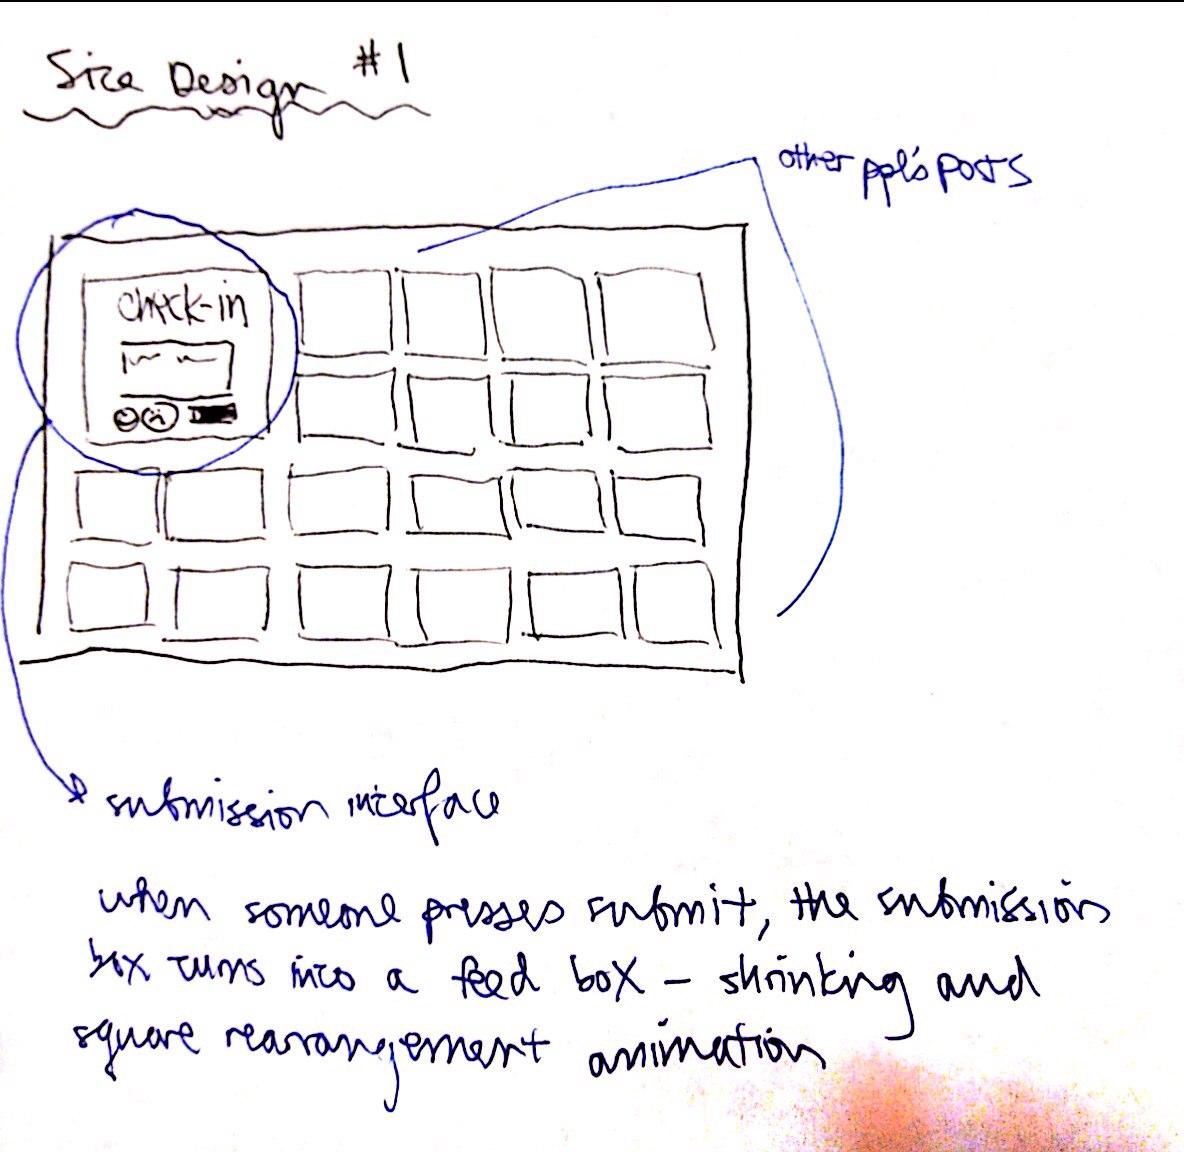 Site Design #1
other ppl's posts
check-in
submission interface
when someone presses submit, the submission
box turns into a feed box – shrinking and
square rearrangement animation